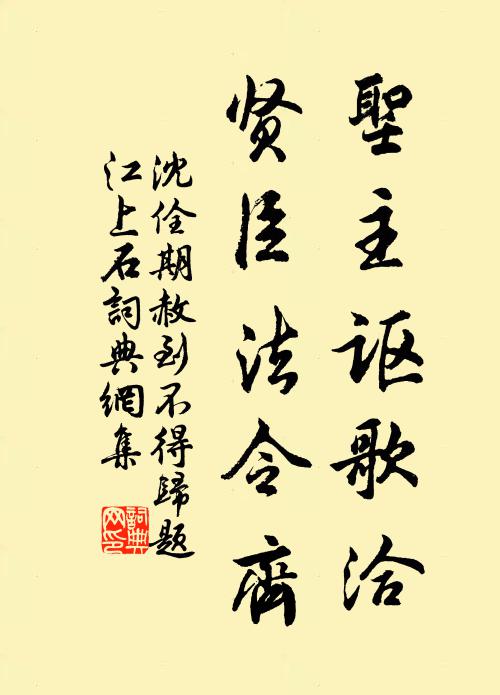 聖主讴歌洽
贤臣法令齊
沈佺期赦到不得歸題
江上石詞典網集
詞典网印